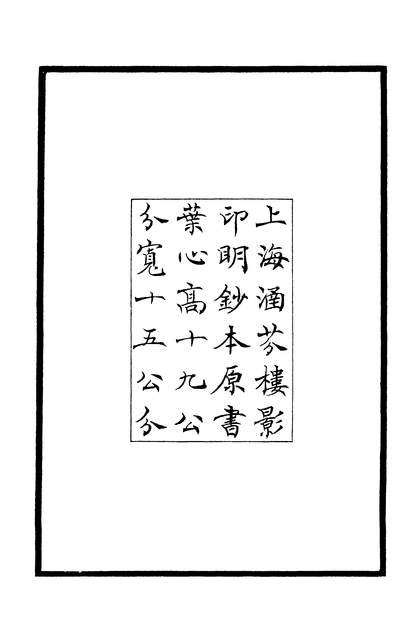 上海涵芬樓影
印明鈔本原書
葉心高十九公
分寬十五公分